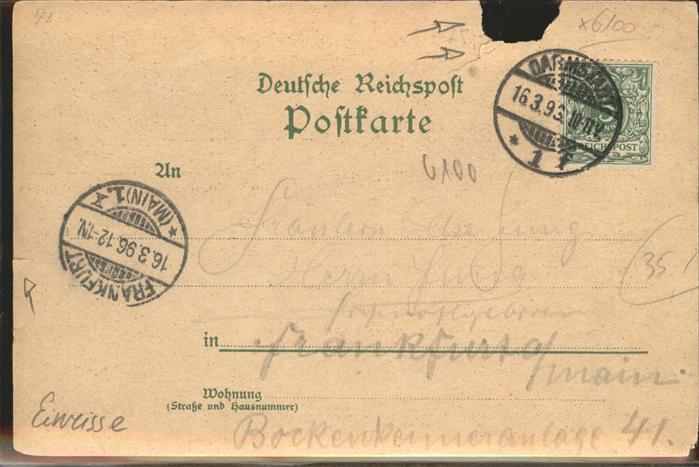 41.
x6100
Deutsche Reichspost
Postkarte
DARMSTADT
16.3.96.10-11V.
* 1 *
REICHSPOST
An
6100
FRANKFURT (MAIN) 1.
16.3.96.12-1N.
Fräulein Else Jung
Herrn Jung
35.-
in Frankfurt a/
Main.
Wohnung
(Straße und Hausnummer)
Bockenheimeranlage 41.
Einrisse